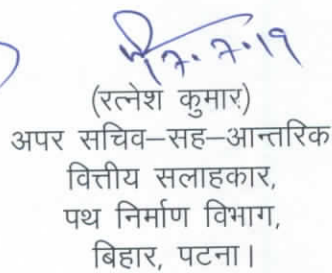 17.7.19
(रत्नेश कुमार)
अपर सचिव–सह–आन्तरिक
वित्तीय सलाहकार,
पथ निर्माण विभाग,
बिहार, पटना।